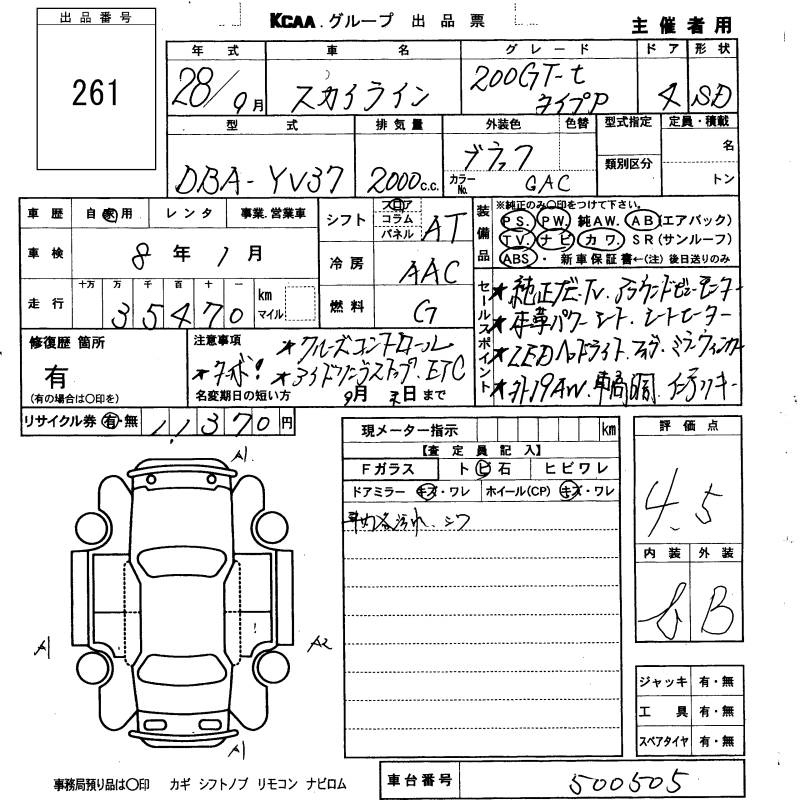 出品番号
261
KCAA.グループ 出品票
主催者用
年式 車名 グレード ドア 形状
28/9月 スカイライン 200GT-t タイプP 4 SD
型式 排気量 外装色 色替 型式指定 定員・積載
類別区分
DBA-YV37 2000c.c. ブラック カラーNo. GAC 名 トン
車歴 自家用 レンタ 事業.営業車
車検 8年 1月
走行 十万 万 千 百 十 一 km マイル
35470
シフト フロア コラム パネル AT
冷房 AAC
燃料 G
装備品
※純正のみ〇印をつけて下さい。
PS. PW. 純AW. AB (エアバック)
TV. ナビ カワ. SR (サンルーフ)
ABS・新車保証書←(注) 後日送りのみ
セールスポイント
★純正ナビ.TV.アラウンドビューモニター
★本革パワーシート.シートヒーター
★LEDヘッドライト.フォグ.ミラーウィンカー
修復歴 箇所
有
(有の場合は〇印を)
注意事項 ★クルーズコントロール
★ターボ! ★アイドリングストップ.ETC
名変期日の短い方 9月 末日 まで
リサイクル券 有・無 11370円
現メーター指示 km
【査定員記入】
Fガラス トビ石 ヒビワレ
ドアミラー キズ・ワレ ホイール(CP) キズ・ワレ
シワ
評価点
4.5
内装 外装
B
A1
A1 A2
A1
ジャッキ 有・無
工具 有・無
スペアタイヤ 有・無
事務局預り品は〇印 カギ シフトノブ リモコン ナビロム
車台番号 500505